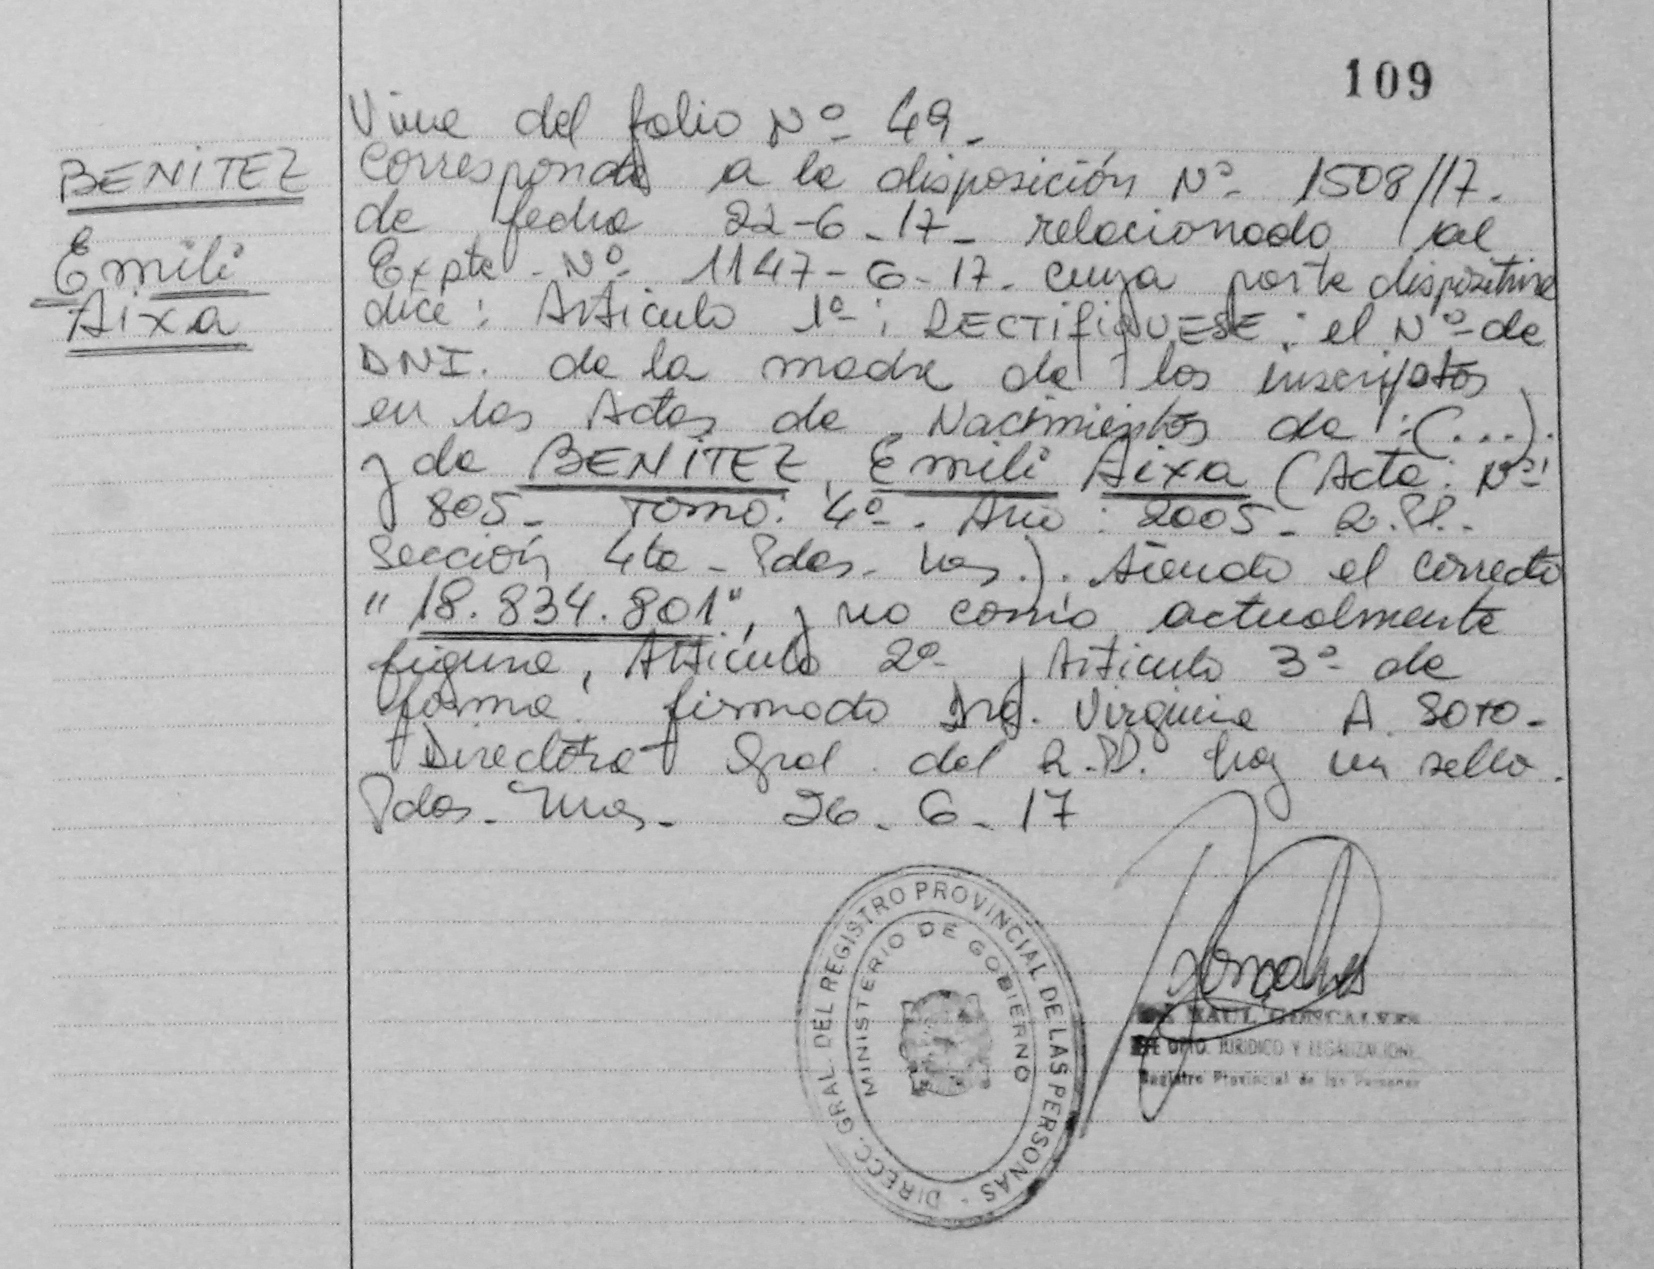 109
BENITEZ
Emili
Aixa
Viene del folio Nº 49-
Corresponde a la disposición Nº 1508/17.
de fecha 22-6-17- relacionado al
Expte. Nº 1147-G-17. cuya parte dispositiva
dice: Artículo 1º: RECTIFIQUESE: el Nº de
DNI. de la madre de los inscriptos
en las Actas de Nacimientos de: (...).
y de BENITEZ, Emili Aixa (Acta: Nº
805- Tomo: 4º. Año: 2005- R.P.
Sección 4ta - Pdas. Mnes.). Siendo el correcto
"18.834.801", y no como actualmente
figura, Artículo 2º y Artículo 3º de
forma. firmado Ing. Virginia A SOTO-
Directora Gral. del R.P. hay un sello.
Pdas. Mnes- 26-6-17
DIRECC. GRAL. DEL REGISTRO PROVINCIAL DE LAS PERSONAS -
MINISTERIO DE GOBIERNO
RAUL GONCALVES
DPTO. JURIDICO Y LEGALIZACIONES
Registro Provincial de las Personas